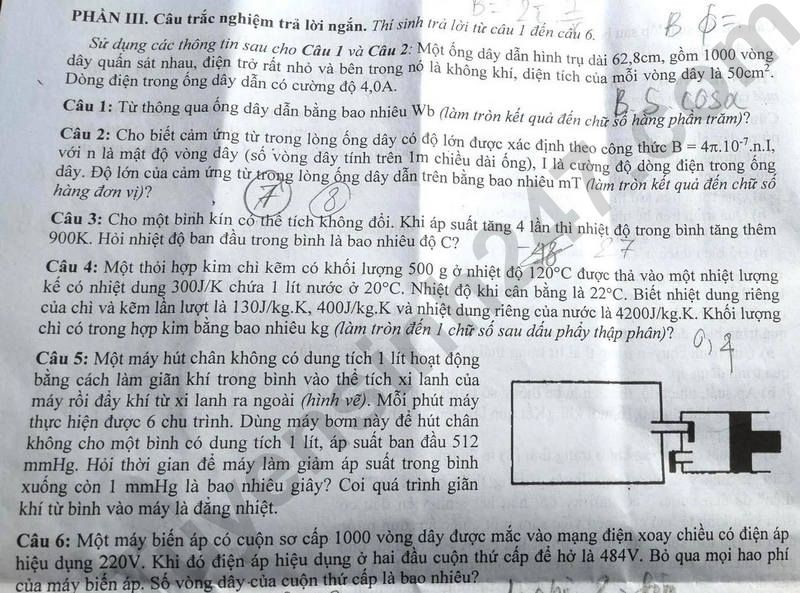 PHẦN III. Câu trắc nghiệm trả lời ngắn. Thí sinh trả lời từ câu 1 đến câu 6.
Sử dụng các thông tin sau cho Câu 1 và Câu 2: Một ống dây dẫn hình trụ dài 62,8cm, gồm 1000 vòng
dây quấn sát nhau, điện trở rất nhỏ và bên trong nó là không khí, diện tích của mỗi vòng dây là 50cm².
Dòng điện trong ống dây dẫn có cường độ 4,0A.
B S cosα
Câu 1: Từ thông qua ống dây dẫn bằng bao nhiêu Wb (làm tròn kết quả đến chữ số hàng phần trăm)?
Câu 2: Cho biết cảm ứng từ trong lòng ống dây có độ lớn được xác định theo công thức B = 4π.10⁻⁷.n.I,
với n là mật độ vòng dây (số vòng dây tính trên 1m chiều dài ống), I là cường độ dòng điện trong ống
dây. Độ lớn của cảm ứng từ trong lòng ống dây dẫn trên bằng bao nhiêu mT (làm tròn kết quả đến chữ số
hàng đơn vị)?
7 8
Câu 3: Cho một bình kín có thể tích không đổi. Khi áp suất tăng 4 lần thì nhiệt độ trong bình tăng thêm
900K. Hỏi nhiệt độ ban đầu trong bình là bao nhiêu độ C?
27
Câu 4: Một thỏi hợp kim chì kẽm có khối lượng 500 g ở nhiệt độ 120°C được thả vào một nhiệt lượng
kế có nhiệt dung 300J/K chứa 1 lít nước ở 20°C. Nhiệt độ khi cân bằng là 22°C. Biết nhiệt dung riêng
của chì và kẽm lần lượt là 130J/kg.K, 400J/kg.K và nhiệt dung riêng của nước là 4200J/kg.K. Khối lượng
chì có trong hợp kim bằng bao nhiêu kg (làm tròn đến 1 chữ số sau dấu phẩy thập phân)?
Câu 5: Một máy hút chân không có dung tích 1 lít hoạt động
bằng cách làm giãn khí trong bình vào thể tích xi lanh của
máy rồi đẩy khí từ xi lanh ra ngoài (hình vẽ). Mỗi phút máy
thực hiện được 6 chu trình. Dùng máy bơm này để hút chân
không cho một bình có dung tích 1 lít, áp suất ban đầu 512
mmHg. Hỏi thời gian để máy làm giảm áp suất trong bình
xuống còn 1 mmHg là bao nhiêu giây? Coi quá trình giãn
khí từ bình vào máy là đẳng nhiệt.
Câu 6: Một máy biến áp có cuộn sơ cấp 1000 vòng dây được mắc vào mạng điện xoay chiều có điện áp
hiệu dụng 220V. Khi đó điện áp hiệu dụng ở hai đầu cuộn thứ cấp để hở là 484V. Bỏ qua mọi hao phí
của máy biến áp. Số vòng dây của cuộn thứ cấp là bao nhiêu?